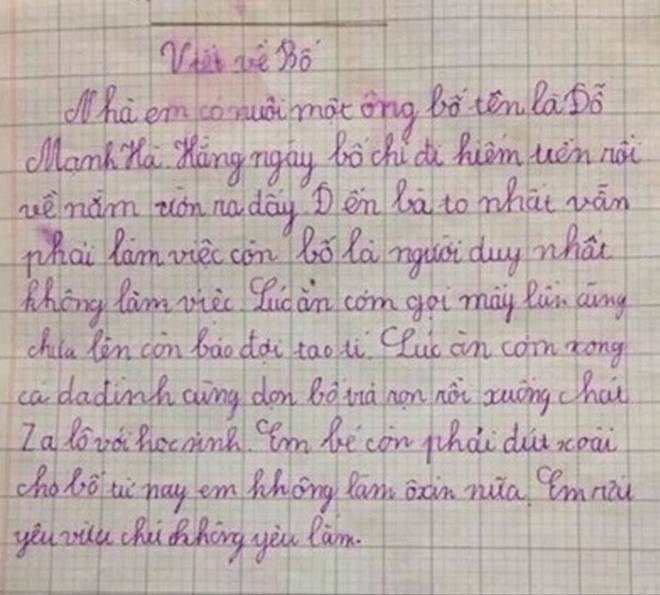 Viết về Bố
Nhà em có nuôi một ông bố tên là Đỗ
Mạnh Hà. Hằng ngày bố chỉ đi hiếm uền rồi
về nằm ưỡn ra đấy Đến bà to nhất vẫn
phải làm việc còn bố là người duy nhất
không làm việc. Lúc ăn cơm gọi mấy lần cũng
chưa lên còn bảo đợi tao tí. Lúc ăn cơm xong
cả da dình cùng dọn bố trả rọn rồi xuống chát
Za lô với học sinh. Em bé còn phải đút xoài
cho bố từ nay em không làm ôxin nữa. Em rất
yêu vừa chứ không yêu lắm.